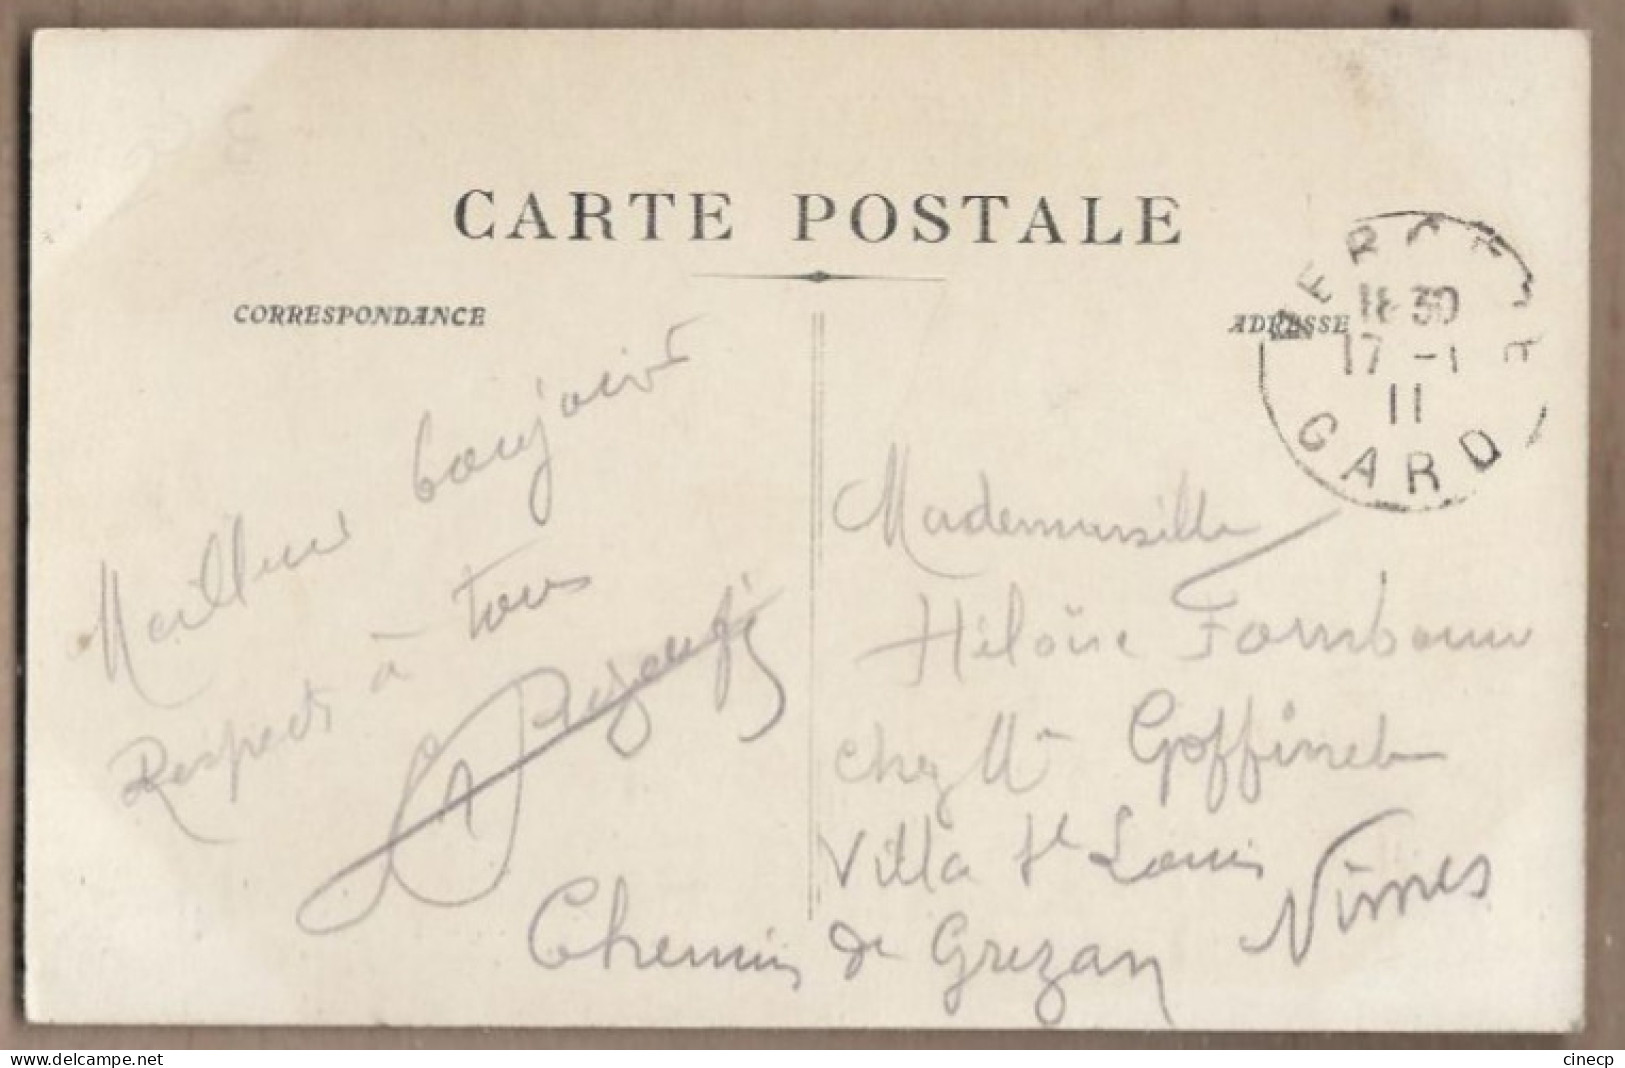 CARTE POSTALE
CORRESPONDANCE
ADRESSE
18 30
17 - 1
11
GARD
Meilleur bonjour
Respects à tous
Mademoiselle
Héloïse
chez Mr Goffinet
Villa St Louis
Chemin de Grézan
Nîmes
delcampe.net
cinecp